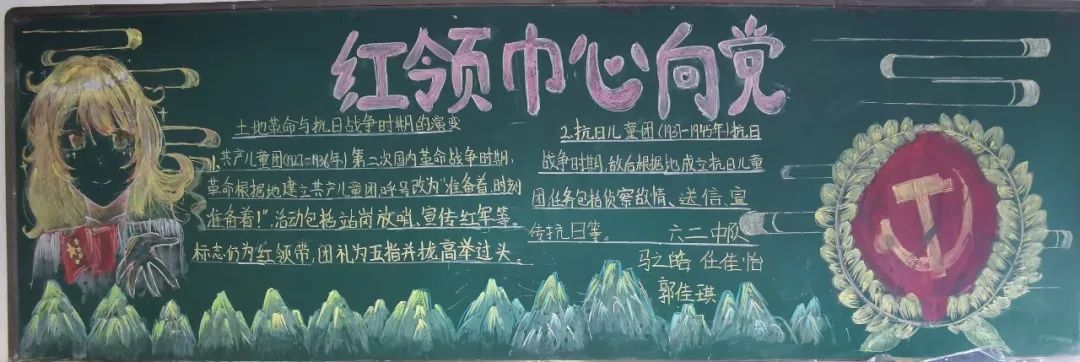 红领巾心向党
土地革命与抗日战争时期的演变
1.共产儿童团(1927-1936年)第二次国内革命战争时期,
革命根据地建立共产儿童团呼号改为"准备着,时刻
准备着!".活动包括站岗放哨、宣传红军等。
标志仍为红领带,团礼为五指并拢高举过头。
2.抗日儿童团(1937-1945年)抗日
战争时期,敌后根据地成立抗日儿童
团任务包括侦察敌情、送信、宣
传抗日等。
六二中队
马之皓 任佳怡
郭佳琪